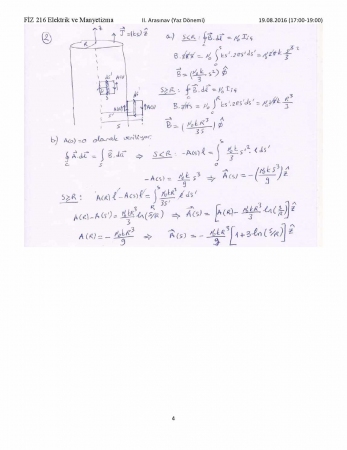 FİZ 216 Elektrik ve Manyetizma II. Arasınav (Yaz Dönemi) 19.08.2016 (17:00-19:00)
② a) s<R : ∮ B⃗.dl⃗ = μ₀ Iiç
J⃗ = (ks) ẑ
B.2πs = μ₀ ∫₀ˢ ks'.2πs'ds' = μ₀2πk s³/3
B⃗ = (μ₀k/3 s²) φ̂
s≥R : ∮ B⃗.dl⃗ = μ₀ Iiç
B.2πs = μ₀ ∫₀ᴿ ks'.2πs'ds' = μ₀2πk R³/3
B⃗ = (μ₀kR³/3s) φ̂
b) A(0)=0 olarak veriliyor.
∮ A⃗.dl⃗ = ∫ B⃗.da⃗ ⇒ s≤R : -A(s) l = ∫₀ˢ μ₀k/3 s'² l ds'
-A(s) = μ₀k/9 s³ ⇒ A⃗(s) = -(μ₀k/9 s³) ẑ
s≥R : A(R) l - A(s) l = ∫ μ₀kR³/3s' l ds'
A(R) - A(s) = μ₀kR³/3 ln(s/R) ⇒ A⃗(s) = [A(R) - μ₀kR³/3 ln(s/R)] ẑ
A(R) = - μ₀kR³/9 ⇒ A⃗(s) = - μ₀kR³/9 [1+3 ln(s/R)] ẑ
4